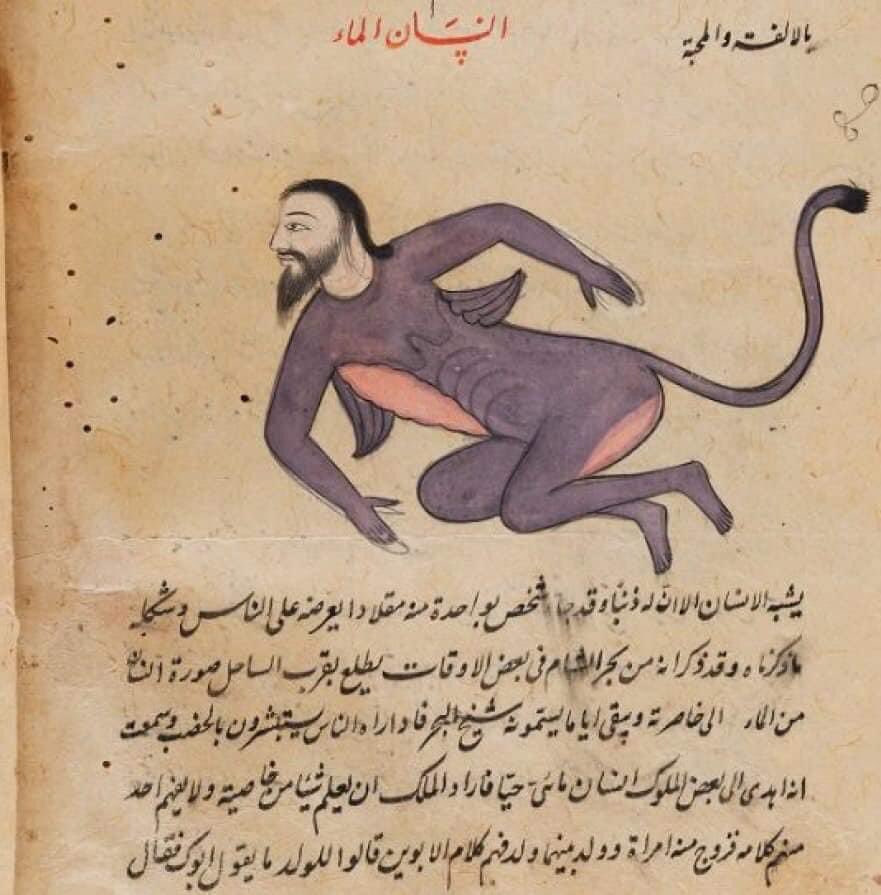 بالالفة والمحبة انسان الماء
يشبه الانسان الا ان له ذنبا وقد جا شخص بواحدة منه مقددا يعرضه على الناس وشكله
ماذكرناه وقد ذكر انه من بحر الشام فى بعض الاوقات يطلع بقرب الساحل صورة انسان
من الماء الى خاصرته ويبقى اياما يسمونه شيخ البحر فاذا راه الناس يستبشرون بالخصب وسمعت
انه اهدى الى بعض الملوك انسان مائى حيا فاراد الملك ان يعلم شيئا من خاصية ولا يفهم احد
منهم كلامه فزوج منه امراة وولد بينهما ولد فهم كلام الابوين قالوا للولد ما يقول ابوك فقال